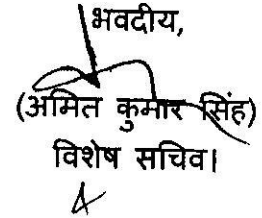 भवदीय,
(अमित कुमार सिंह)
विशेष सचिव।